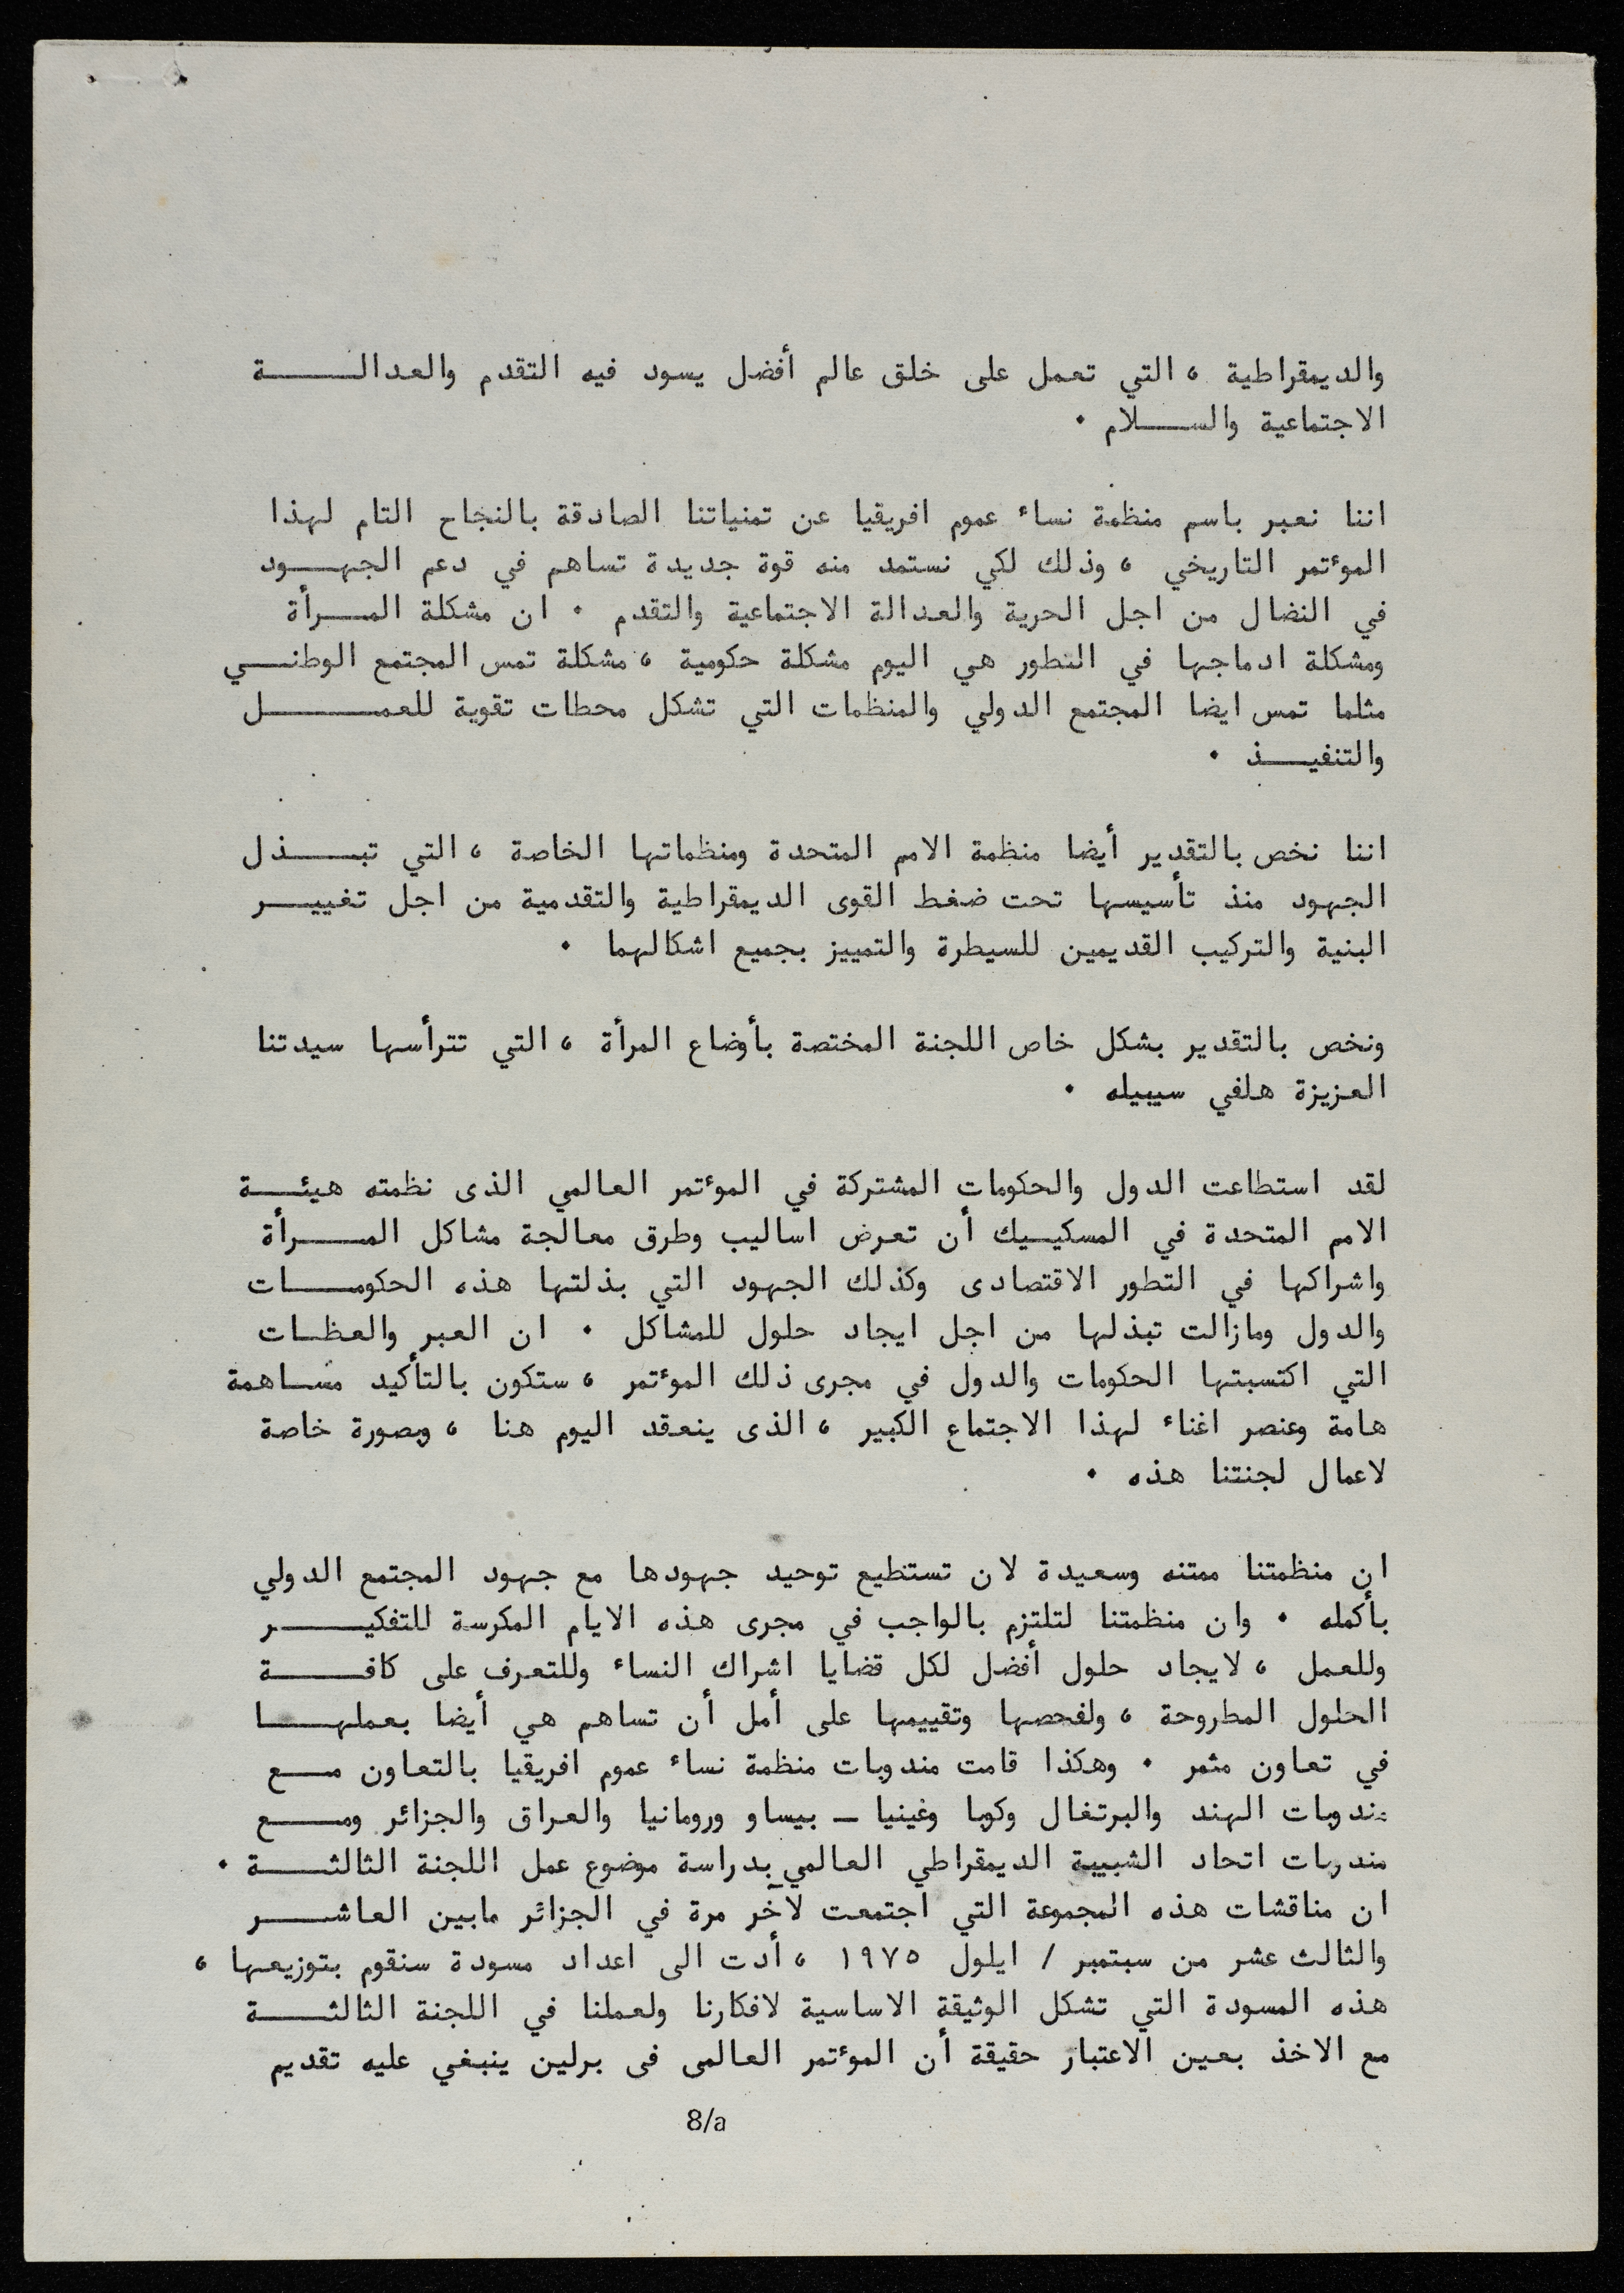 والديمقراطية ، التي تعمل على خلق عالم أفضل يسود فيه التقدم والعدالـــــة
الاجتماعية والســـلام .
اننا نعبر باسم منظمة نساء عموم افريقيا عن تمنياتنا الصادقة بالنجاح التام لهذا
المؤتمر التاريخي ، وذلك لكي نستمد منه قوة جديدة تساهم في دعم الجهـــود
في النضال من اجل الحرية والعدالة الاجتماعية والتقدم . ان مشكلة المـــرأة
ومشكلة ادماجها في التطور هي اليوم مشكلة حكومية ، مشكلة تمس المجتمع الوطنـــي
مثلما تمس ايضا المجتمع الدولي والمنظمات التي تشكل محطات تقوية للعمـــــل
والتنفيـــذ .
اننا نخص بالتقدير أيضا منظمة الامم المتحدة ومنظماتها الخاصة ، التي تبـــذل
الجهود منذ تأسيسها تحت ضغط القوى الديمقراطية والتقدمية من اجل تغييـــر
البنية والتركيب القديمين للسيطرة والتمييز بجميع اشكالهما .
ونخص بالتقدير بشكل خاص اللجنة المختصة بأوضاع المرأة ، التي تترأسها سيدتنا
العزيزة هلفي سيبيله .
لقد استطاعت الدول والحكومات المشتركة في المؤتمر العالمي الذى نظمته هيئـــة
الامم المتحدة في المسكيـيك أن تعرض اساليب وطرق معالجة مشاكل المـــرأة
واشراكها في التطور الاقتصادى وكذلك الجهود التي بذلتها هذه الحكومـــات
والدول ومازالت تبذلها من اجل ايجاد حلول للمشاكل . ان العبر والعظــات
التي اكتسبتها الحكومات والدول في مجرى ذلك المؤتمر ، ستكون بالتأكيد مســاهمة
هامة وعنصر اغناء لهذا الاجتماع الكبير ، الذى ينعقد اليوم هنا ، وبصورة خاصة
لاعمال لجنتنا هذه .
ان منظمتنا ممتنه وسعيدة لان تستطيع توحيد جهودها مع جهود المجتمع الدولي
بأكمله . وان منظمتنا لتلتزم بالواجب في مجرى هذه الايام المكرسة للتفكيـــــر
وللعمل ، لايجاد حلول أفضل لكل قضايا اشراك النساء وللتعرف على كافـــــة
الحلول المطروحة ، ولفحصها وتقييمها على أمل أن تساهم هي أيضا بعملهـــــا
في تعاون مثمر . وهكذا قامت مندوبات منظمة نساء عموم افريقيا بالتعاون مـــع
مندوبات الهند والبرتغال وكوبا وغينيا ــ بيساو ورومانيا والعراق والجزائر ومـــع
مندوبات اتحاد الشبيبة الديمقراطي العالمي بدراسة موضوع عمل اللجنة الثالثـــة .
ان مناقشات هذه المجموعة التي اجتمعت لآخر مرة في الجزائر مابين العاشـــر
والثالث عشر من سبتمبر / ايلول ١٩٧٥ ، أدت الى اعداد مسودة سنقوم بتوزيعها ،
هذه المسودة التي تشكل الوثيقة الاساسية لافكارنا ولعملنا في اللجنة الثالثـــة
مع الاخذ بعين الاعتبار حقيقة أن المؤتمر العالمى فى برلين ينبغي عليه تقديم
8/a